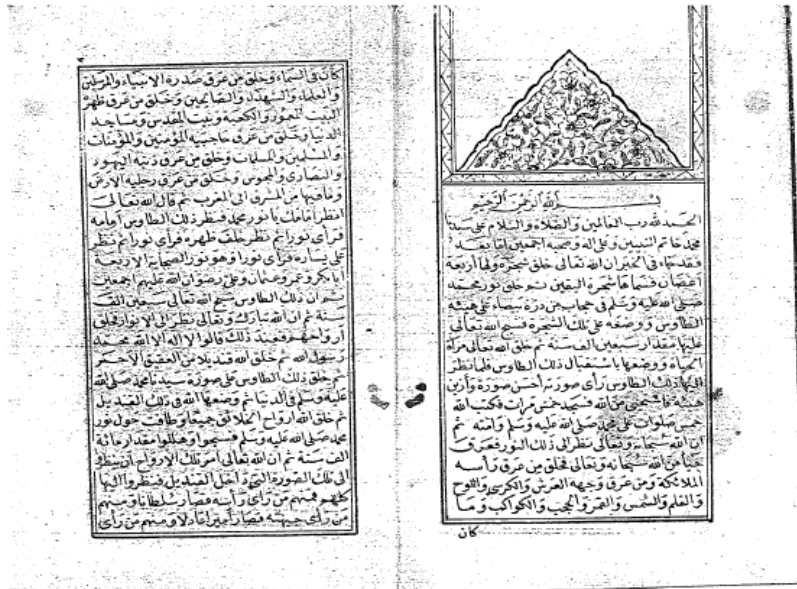 بسم الله الرحمن الرحيم
الحمد لله رب العالمين والصلاة والسلام على سيدنا
محمد خاتم النبيين وعلى اله وصحبه اجمعين اما بعد
فقد جاء في الخبر ان الله تعالى خلق شجرة ولها أربعة
أغصان فسماها شجرة اليقين ثم خلق نور محمد
صلى الله عليه وسلم في حجاب من درة بيضاء على هيئة
الطاوس ووضعه على تلك الشجرة فسبح الله تعالى
عليها مقدار سبعين الف سنة ثم خلق الله تعالى مرآة
الحياة ووضعها باستقبال ذلك الطاوس فلما نظر
اليها ذلك الطاوس رأى صورته أحسن صورة وأزين
هيئة فاستحى من الله فسجد خمس مرات فكتب الله
خمس صلوات على محمد صلى الله عليه وسلم وامته ثم
ان الله سبحانه وتعالى نظر الى ذلك النور فعرق
حياء من الله سبحانه وتعالى فخلق من عرق رأسه
الملائكة ومن عرق وجهه العرش والكرسي واللوح
والقلم والشمس والقمر والحجب والكواكب وما
كان
كان في السماء وخلق من عرق صدره الانبياء والمرسلين
والعلماء والشهداء والصالحين وخلق من عرق ظهره
البيت المعمور والكعبة وبيت المقدس ومساجد
الدنيا وخلق من عرق حاجبيه المؤمنين والمؤمنات
والمسلمين والمسلمات وخلق من عرق اليهود
والنصارى والمجوس وخلق من عرق رجليه الارض
وما فيها من المشرق الى المغرب ثم قال الله تعالى
انظر امامك يا نور محمد فنظر ذلك الطاوس أمامه
فرأى نورا ثم نظر خلف ظهره فرأى نورا ثم نظر
على يساره فرأى نورا وهو نور الصحابة الاربعة
أبا بكر وعمر وعثمان وعلي رضوان الله عليهم اجمعين
ثم ان ذلك الطاوس سبح الله تعالى سبعين الف
سنة ثم ان الله تبارك وتعالى نظر الى الانوار فخلق
أرواحهم فعند ذلك قالوا لا اله الا الله محمد
رسول الله ثم خلق الله قنديلا من العقيق الأحمر
ثم خلق ذلك الطاوس على صورة سيدنا محمد صلى الله
عليه وسلم في الدنيا ثم وضعها الله في ذلك القنديل
ثم خلق الله ارواح الخلائق جميعا وطافت حول نور
محمد صلى الله عليه وسلم فسبحوا وهللوا مقدار مائة
الف سنة ثم ان الله تعالى امر تلك الارواح ان ينظروا
الى تلك الصورة التي داخل القنديل فينظروا اليها
كلهم فمنهم من رأى رأسه فصار سلطانا ومنهم
من رأى جبهته فصار أميرا عادلا ومنهم من رأى